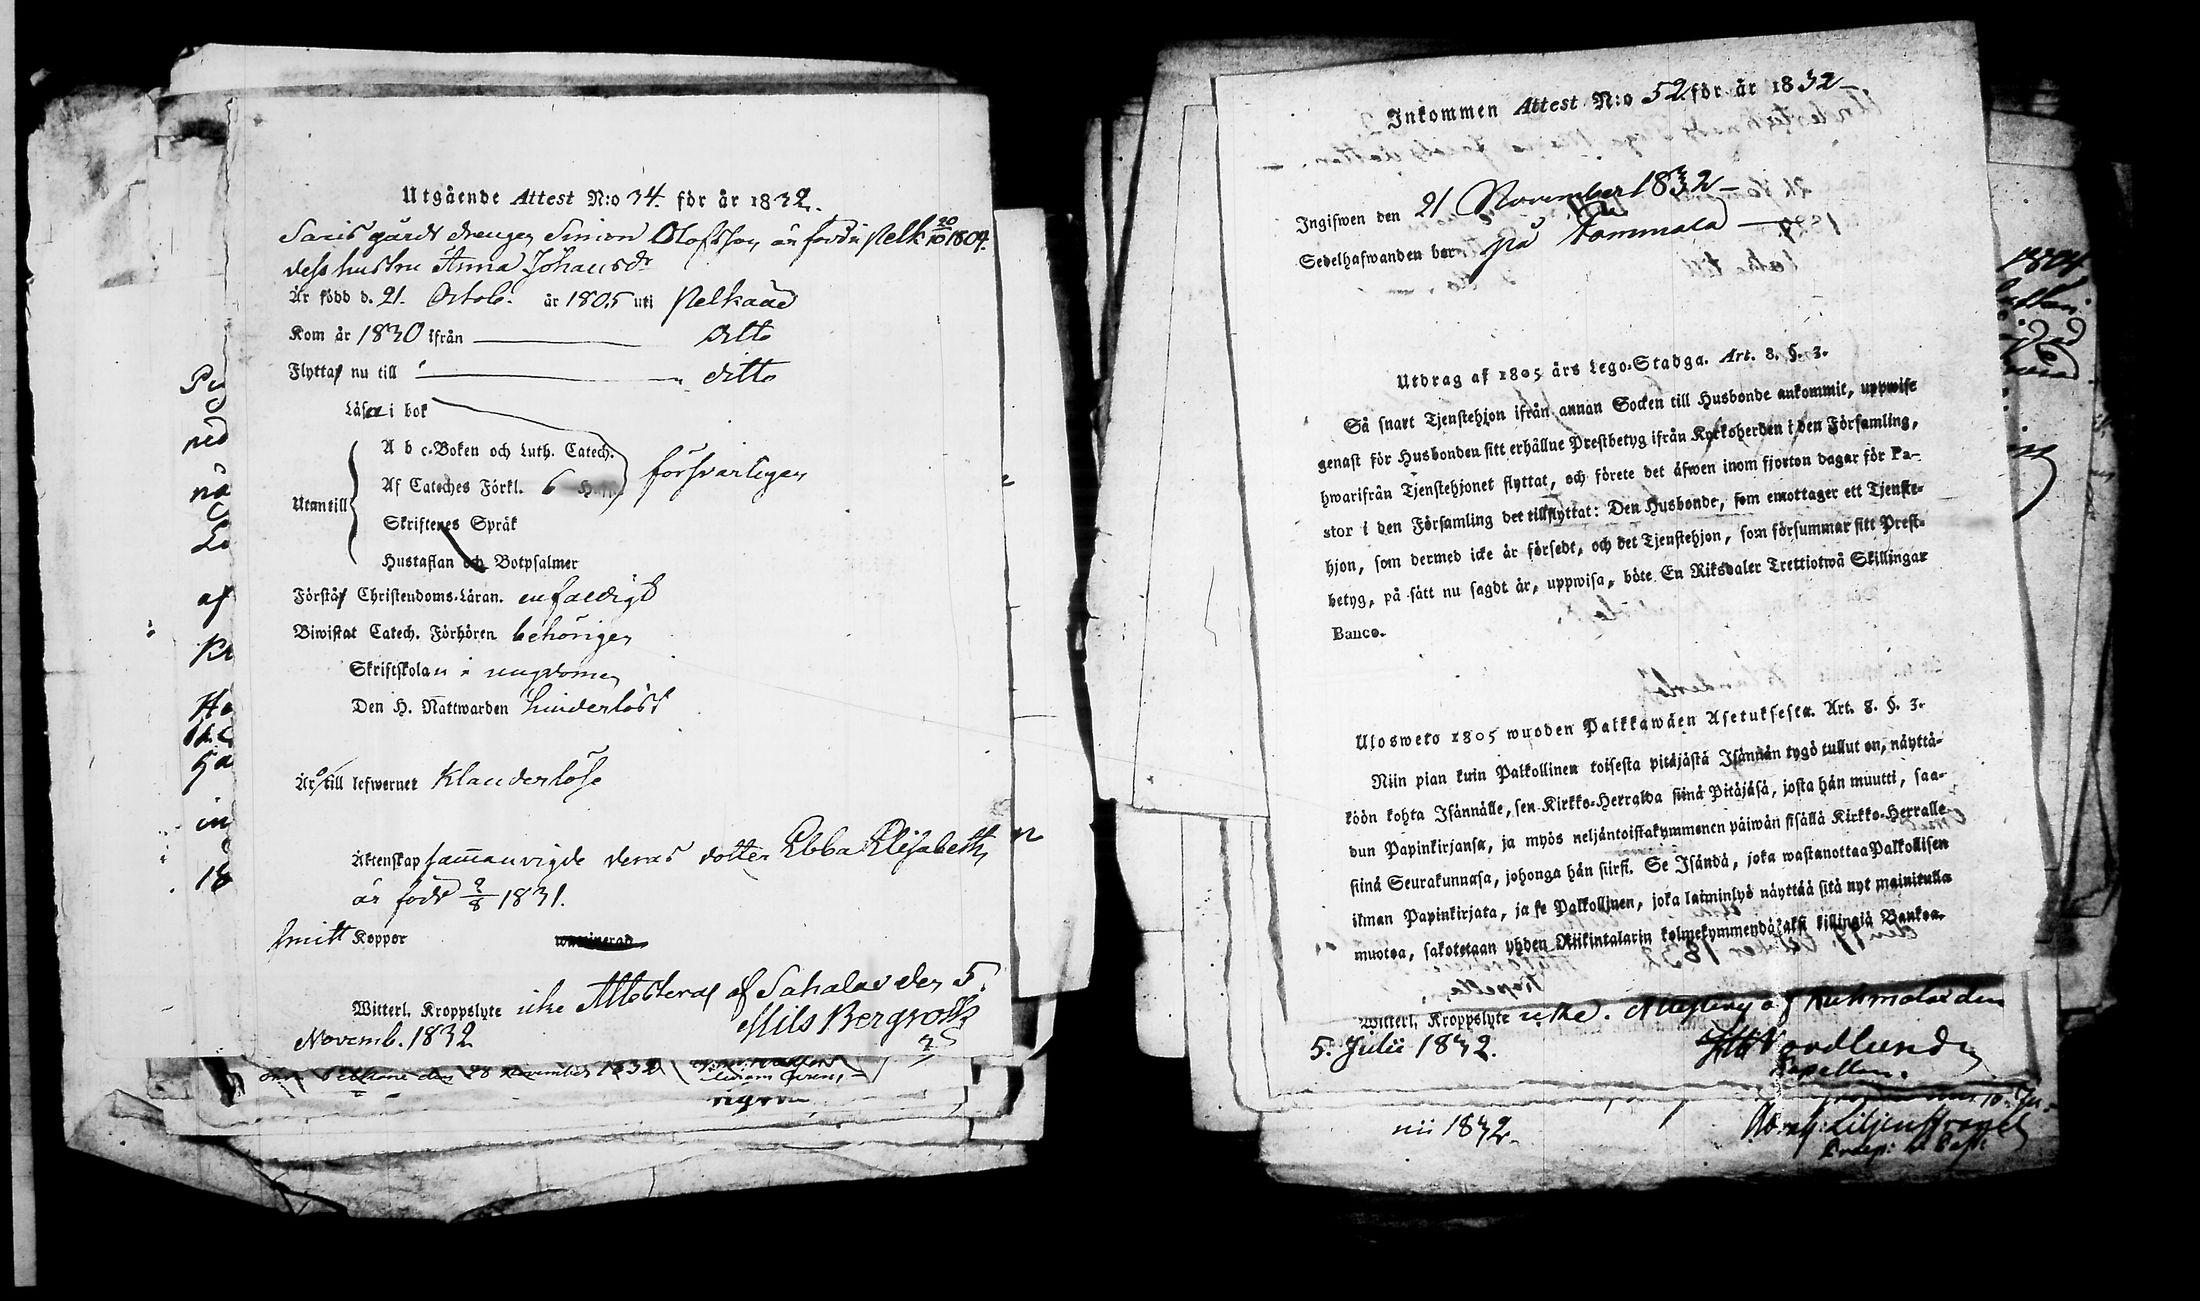 Utgående Attest N:o 34. för år 1832.
Saris gårds drengen Simon Olofsson är född i Pelk 20/10 1804.
dess hustru Anna Johansdr
Är född d. 21. Octob. år 1805 uti Pelkäne
Kom år 1830 ifrån ditto
Flyttaf nu till ditto
Läsa i bok
Utantill
A b c-Boken och Luth. Catech.
Af Cateches Förkl. 6 försvarligen
Skriftenes Språk
Hustaflan och Botpsalmer
Förstå Christendoms-Läran. enfaldigt
Biwistat Catech. Förhören behörigen
Skriftskolan i ungdomen
Den H. Nattwarden hinderlöst
Är till lefwernet Klanderlöse
Äktenskap sammanvigde deras dotter Ebba Elisabeth,
är född 2/8 1831.
haft Koppor
Witterl. Kroppslyte icke Attesteras af Sahalax den 5.
Novemb. 1832 Nils Bergroth
28 November 1832
Inkommen Attest N:o 52 för år 1832
Ingifwen den 21 November 1832
Sedelhafwanden bor på Tommola
Utdrag af 1805 års Lego-Stadga. Art. 8. §. 3.
Så snart Tjenstehjon ifrån annan Socken till Husbonde ankommit, uppwise
genast för Husbonden sitt erhållne Prestbetyg ifrån Kyrkoherden i den Församling,
hwarifrån Tjenstehjonet flyttat, och förete det äfwen inom fjorton dagar för Pa-
stor i den Församling det tillflyttat: Den Husbonde, som emottager ett Tjenste-
hjon, som dermed icke är försedt, och det Tjenstehjon, som försummar sitt Prest-
betyg, på sätt nu sagdt är, uppwisa, böte En Riksdaler Trettiotwå Skillingar
Banco.
Ulosweto 1805 wuoden Palkkawäen Asetuksesta. Art. 8. §. 3.
Niin pian kuin Palkollinen toisesta pitäjästä Isännän tygö tullut on, näyttä-
köön kohta Isännälle, sen Kirkko-Herralda siinä Pitäjäsä, josta hän muutti, saa-
dun Papinkirjansa, ja myös neljäntoistakymmenen päiwän sisällä Kirkko-Herralle
siinä Seurakunnasa, johonga hän siirsi. Se Isändä, joka wastanottaa Palkollisen
ilman Papinkirjata, ja se Palkollinen, joka laiminlyö näyttää sitä nyt mainitulla
muotoa, sakotetaan yhden Riikintalarin kolmekymmendäkaksi killingiä Bankoa.
Witterl. Kroppslyte icke. Attesteras af Kuhmalax den
5. Julii 1832. Nordlund
Kapellan.
nii 1832.